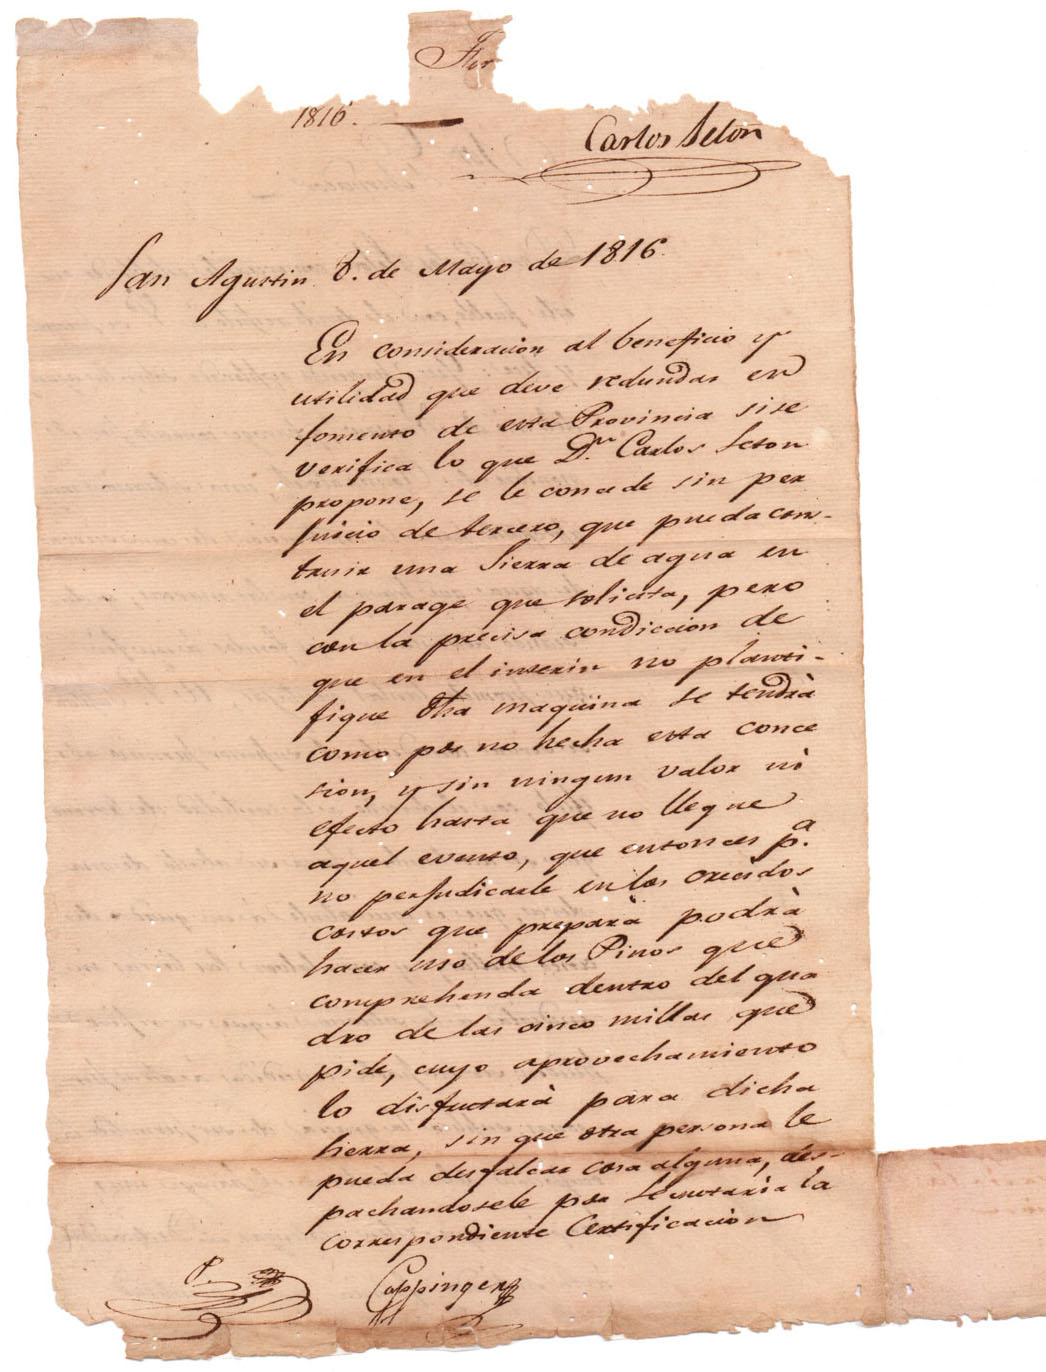 Fer
1816.
Carlos Seton
San Agustin 8. de Mayo de 1816.
En consideracion al beneficio y
utilidad que deve redundar en
fomento de esta Provincia si se
verifica lo que Dn. Carlos Seton
propone, se le concede sin per
juicio de tercero, que pueda cons-
truir una Sierra de agua en
el parage que solicita, pero
con la precisa condiccion de
que en el interin no planti-
fique dha maquina se tendrà
como por no hecha esta conce
sion, y sin ningun valor ni
efecto hasta que no llegue
aquel evento, que entonces pa.
no perjudicarle en los crecidos
costos que preparà podrà
hacer uso de los Pinos que
comprehenda dentro del qua
dro de las cinco millas que
pide, cuyo aprovechamiento
lo disfuctarà para dicha
Sierra, sin que otra persona le
pueda desfalcar cosa alguna, des-
pachandosele por Secretaria la
correspondiente Certificacion
Coppinger